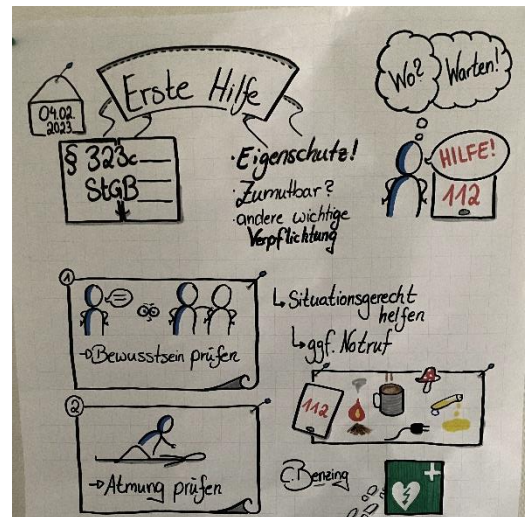 04.02.
2023
Erste Hilfe
Wo?
Warten!
HILFE!
112
§ 323c
StGB
· Eigenschutz!
· Zumutbar?
· andere wichtige
Verpflichtung
1
→ Bewusstsein prüfen
↳ Situationsgerecht
helfen
↳ ggf. Notruf
112
2
→ Atmung prüfen
C. Benzing